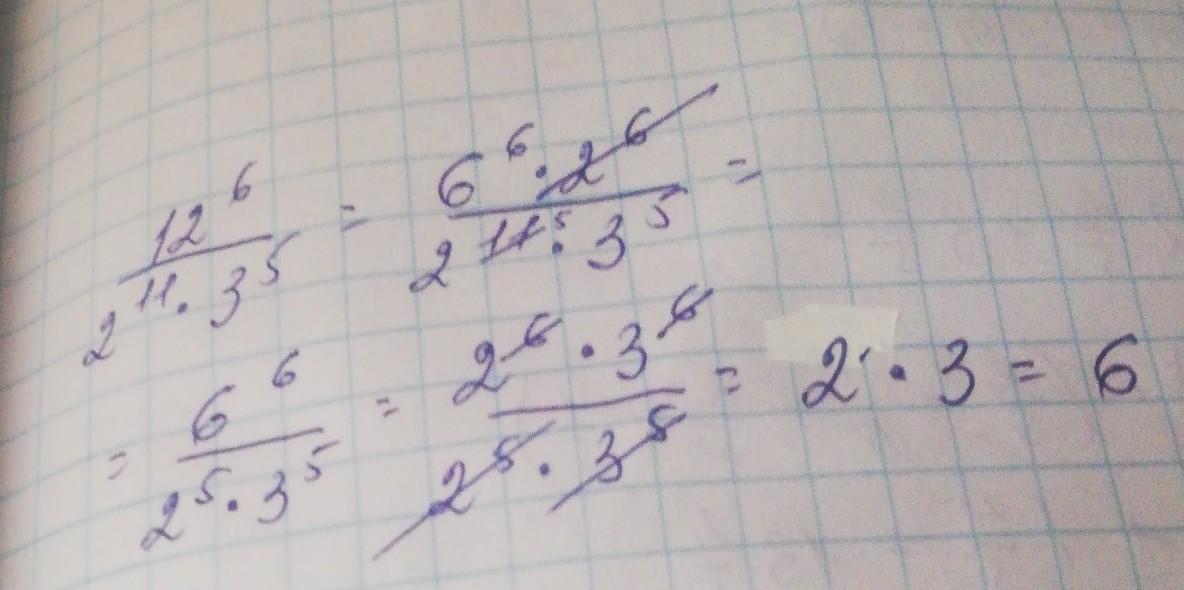 12^6 / (2^11 · 3^5) = (6^6 · 2^6) / (2^11 5 · 3^5) =
= 6^6 / (2^5 · 3^5) = (2^6 · 3^6) / (2^5 · 3^5) = 2 · 3 = 6